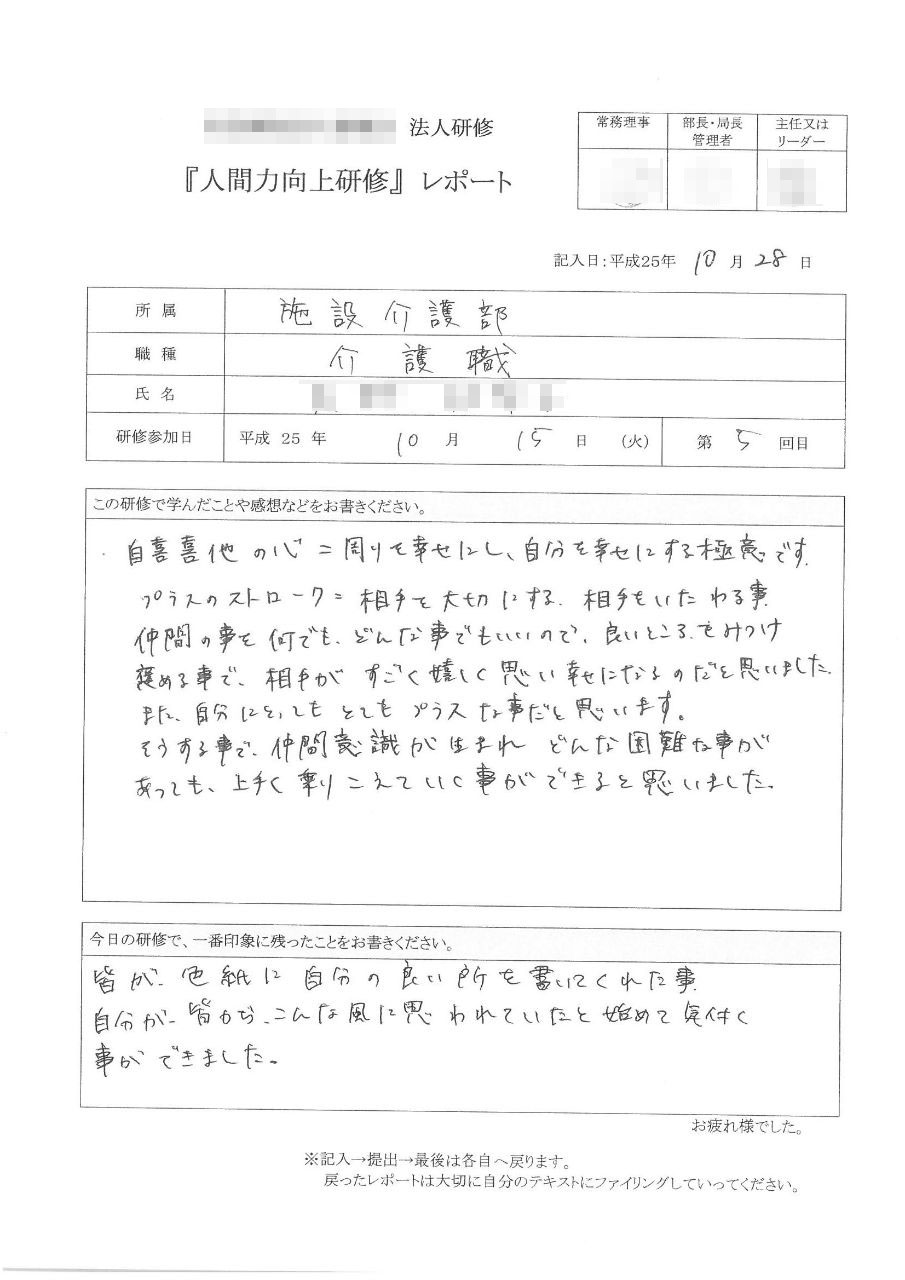 法人研修
『人間力向上研修』レポート
常務理事
部長・局長
管理者
主任又は
リーダー
記入日：平成25年 10 月 28 日
所 属 施設介護部
職 種 介護職
氏 名
研修参加日 平成 25 年 10 月 15 日 (火) 第 5 回目
この研修で学んだことや感想などをお書きください。
・自喜喜他の心＝周りを幸せにし、自分を幸せにする極意です。
プラスのストローク＝相手を大切にする。相手をいたわる事。
仲間の事を何でも、どんな事でもいいので、良いところをみつけ
褒める事で、相手がすごく嬉しく思い幸せになるのだと思いました。
また、自分にとってもとてもプラスな事だと思います。
そうする事で、仲間意識が生まれどんな困難な事が
あっても、上手く乗りこえていく事ができると思いました。
今日の研修で、一番印象に残ったことをお書きください。
皆が、色紙に自分の良い所を書いてくれた事。
自分が、皆から、こんな風に思われていたと始めて気付く
事ができました。
お疲れ様でした。
※記入→提出→最後は各自へ戻ります。
戻ったレポートは大切に自分のテキストにファイリングしていってください。